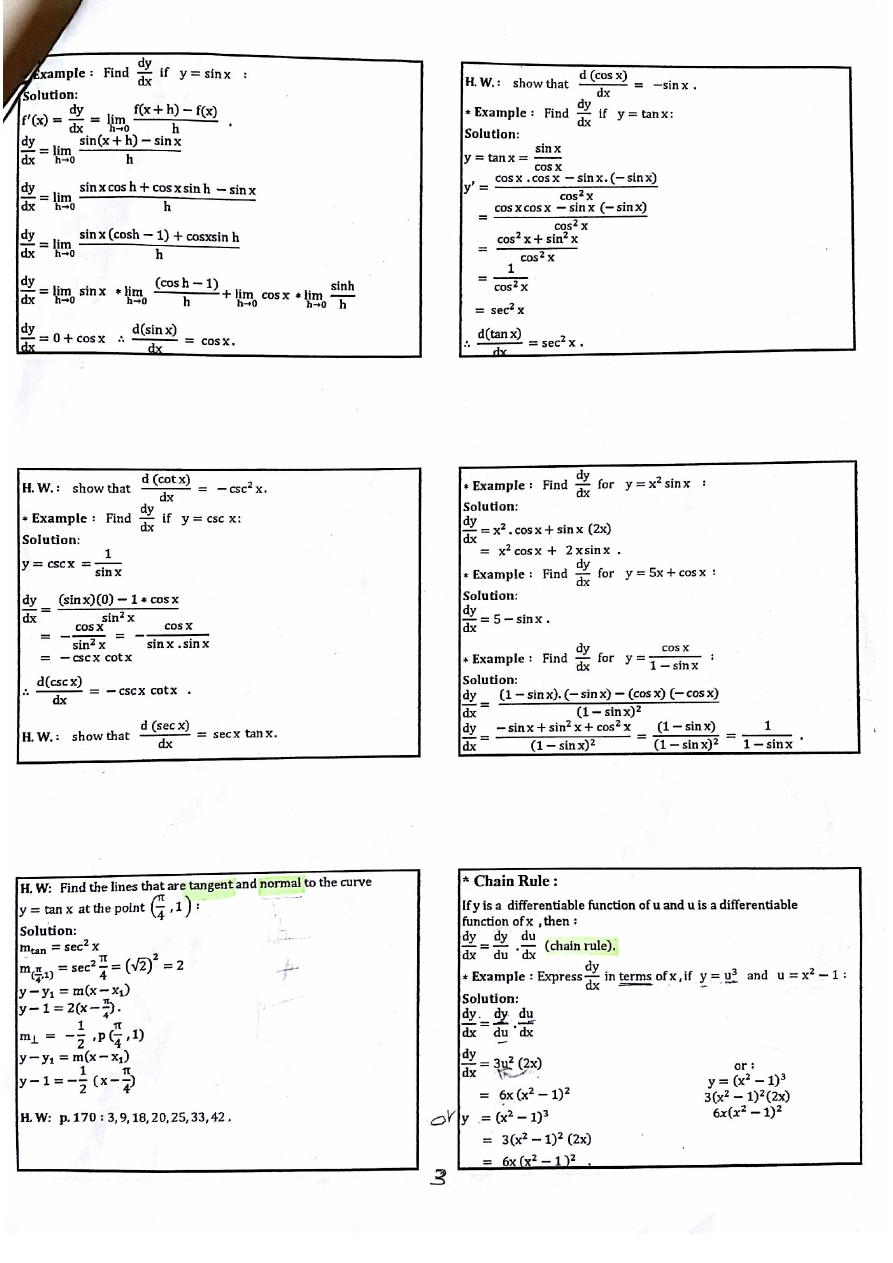 Example : Find dy/dx if y = sin x :
Solution:
f'(x) = dy/dx = lim h→0 f(x + h) − f(x) / h .
dy/dx = lim h→0 sin(x + h) − sin x / h
dy/dx = lim h→0 sin x cos h + cos x sin h − sin x / h
dy/dx = lim h→0 sin x (cosh − 1) + cosxsin h / h
dy/dx = lim h→0 sin x * lim h→0 (cos h − 1)/h + lim h→0 cos x * lim h→0 sinh/h
dy/dx = 0 + cos x ∴ d(sin x)/dx = cos x.
H. W. : show that d (cos x)/dx = −sin x .
* Example : Find dy/dx if y = tan x:
Solution:
y = tan x = sin x / cos x
y' = cos x . cos x − sin x. (− sin x) / cos² x
= cos x cos x − sin x (− sin x) / cos² x
= cos² x + sin² x / cos² x
= 1 / cos² x
= sec² x
∴ d(tan x)/dx = sec² x .
H. W. : show that d (cot x)/dx = − csc² x.
* Example : Find dy/dx if y = csc x:
Solution:
y = csc x = 1 / sin x
dy/dx = (sin x)(0) − 1 * cos x / sin² x
= − cos x / sin² x = − cos x / sin x . sin x
= − csc x cot x
∴ d(csc x)/dx = − csc x cot x .
H. W. : show that d (sec x)/dx = sec x tan x.
* Example : Find dy/dx for y = x² sin x :
Solution:
dy/dx = x² . cos x + sin x (2x)
= x² cos x + 2 x sin x .
* Example : Find dy/dx for y = 5x + cos x :
Solution:
dy/dx = 5 − sin x .
* Example : Find dy/dx for y = cos x / 1 − sin x :
Solution:
dy/dx = (1 − sin x). (− sin x) − (cos x) (− cos x) / (1 − sin x)²
dy/dx = − sin x + sin² x + cos² x / (1 − sin x)² = (1 − sin x) / (1 − sin x)² = 1 / 1 − sin x .
H. W: Find the lines that are tangent and normal to the curve
y = tan x at the point (π/4 , 1) :
Solution:
mtan = sec² x
m(π/4,1) = sec² π/4 = (√2)² = 2
y − y₁ = m(x − x₁)
y − 1 = 2(x − π/4).
m⊥ = − 1/2 , p(π/4 , 1)
y − y₁ = m(x − x₁)
y − 1 = − 1/2 (x − π/4)
H. W: p. 170 : 3, 9, 18, 20, 25, 33, 42 .
* Chain Rule :
If y is a differentiable function of u and u is a differentiable
function of x , then :
dy/dx = dy/du . du/dx (chain rule).
* Example : Express dy/dx in terms of x, if y = u³ and u = x² − 1 :
Solution:
dy/dx = dy/du . du/dx
dy/dx = 3u² (2x)
= 6x (x² − 1)²
or y = (x² − 1)³
= 3(x² − 1)² (2x)
= 6x (x² − 1)² .
or :
y = (x² − 1)³
3(x² − 1)²(2x)
6x(x² − 1)²
3